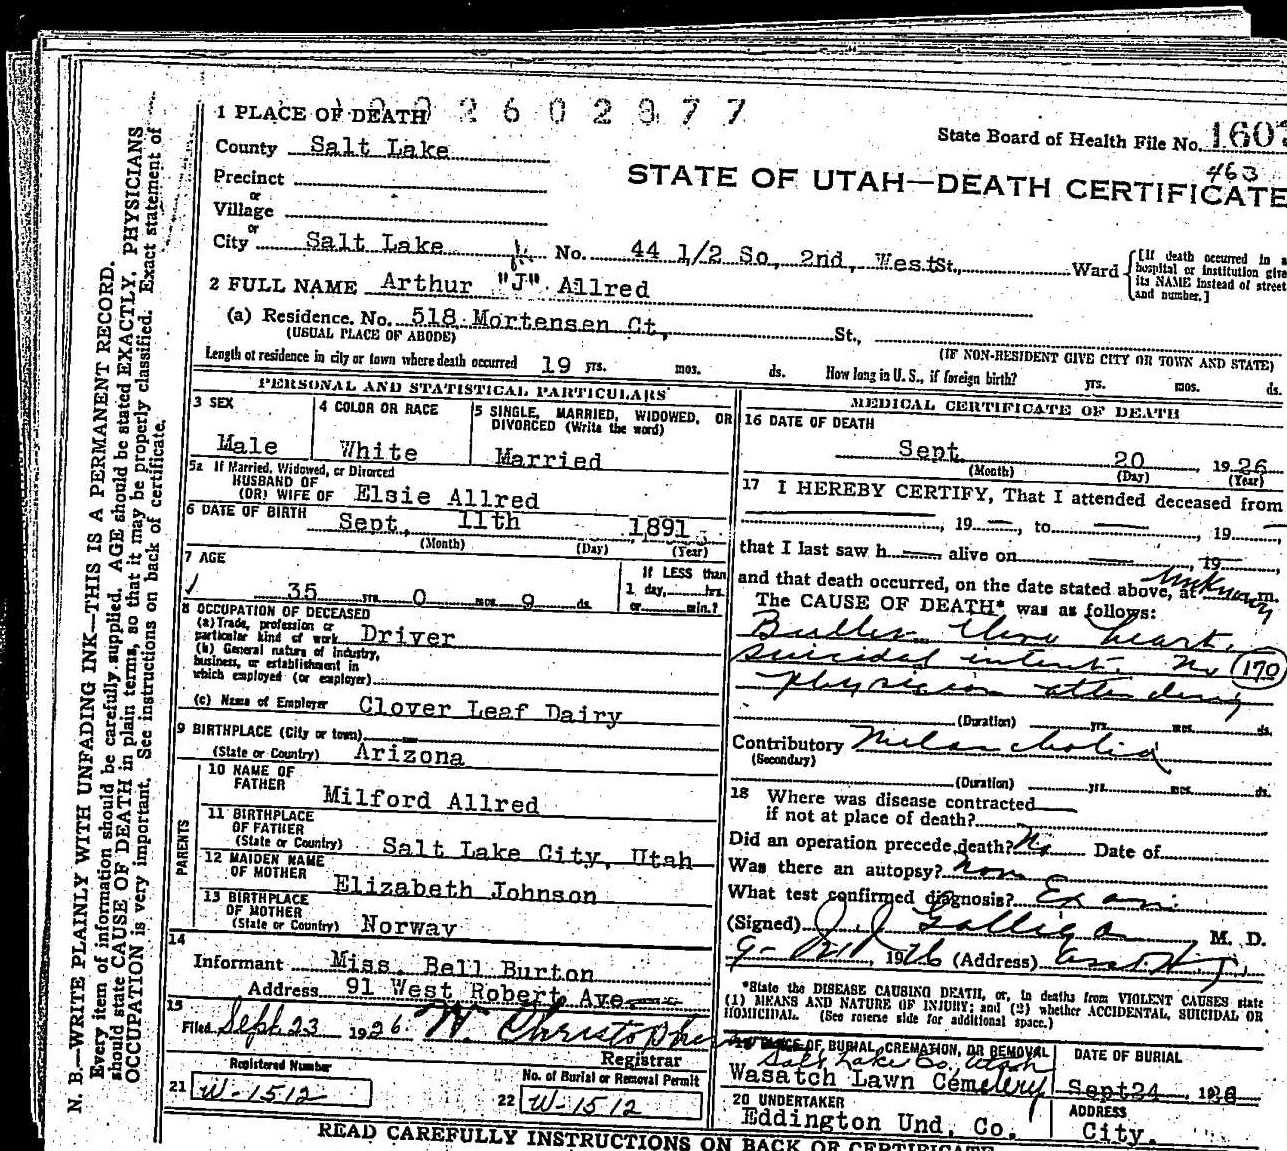 N. B.—WRITE PLAINLY WITH UNFADING INK—THIS IS A PERMANENT RECORD.
Every item of information should be carefully supplied. AGE should be stated EXACTLY. PHYSICIANS
should state CAUSE OF DEATH in plain terms, so that it may be properly classified. Exact statement of
OCCUPATION is very important. See instructions on back of certificate.
1 PLACE OF DEATH 2602977
State Board of Health File No. 160
463
County Salt Lake
STATE OF UTAH—DEATH CERTIFICATE
Precinct
or
Village
or
City Salt Lake No. 44 1/2 So, 2nd, West St., Ward
[If death occurred in a
hospital or institution give
its NAME instead of street
and number.]
2 FULL NAME Arthur "J" Allred
(a) Residence. No. 518 Mortensen Ct, St.,
(USUAL PLACE OF ABODE) (IF NON-RESIDENT GIVE CITY OR TOWN AND STATE)
Length of residence in city or town where death occurred 19 yrs. mos. ds. How long in U. S., if foreign birth? yrs. mos. ds.
PERSONAL AND STATISTICAL PARTICULARS
3 SEX
Male
4 COLOR OR RACE
White
5 SINGLE, MARRIED, WIDOWED, OR
DIVORCED (Write the word)
Married
5a If Married, Widowed, or Divorced
HUSBAND OF
(OR) WIFE OF Elsie Allred
6 DATE OF BIRTH Sept, 11th 1891
(Month) (Day) (Year)
7 AGE
35 yrs. 0 mos. 9 ds.
If LESS than
1 day, hrs.
or min.?
8 OCCUPATION OF DECEASED
(a) Trade, profession or
particular kind of work Driver
(b) General nature of industry,
business, or establishment in
which employed (or employer)
(c) Name of Employer Clover Leaf Dairy
9 BIRTHPLACE (City or town)
(State or Country) Arizona
PARENTS
10 NAME OF
FATHER Milford Allred
11 BIRTHPLACE
OF FATHER
(State or Country) Salt Lake City, Utah
12 MAIDEN NAME
OF MOTHER Elizabeth Johnson
13 BIRTHPLACE
OF MOTHER
(State or Country) Norway
14
Informant Miss. Bell Burton
Address 91 West Robert Ave
15
Filed Sept 23 1926. W. Christophe
Registrar
Registered Number
21 W-1512
No. of Burial or Removal Permit
22 W-1512
MEDICAL CERTIFICATE OF DEATH
16 DATE OF DEATH
Sept 20, 1926
(Month) (Day) (Year)
17 I HEREBY CERTIFY, That I attended deceased from
, 19 , to , 19 ,
that I last saw h alive on , 19 ,
and that death occurred, on the date stated above, at unknown m.
The CAUSE OF DEATH* was as follows:
Bullet thru heart,
suicidal intent. No 170
physician attending
(Duration) yrs. mos. ds.
Contributory Melancholia
(Secondary)
(Duration) yrs. mos. ds.
18 Where was disease contracted
if not at place of death?
Did an operation precede death? No Date of
Was there an autopsy? None
What test confirmed diagnosis? Exam.
(Signed) J. J. Galligan M. D.
9- 1926 (Address)
*State the DISEASE CAUSING DEATH, or, in deaths from VIOLENT CAUSES state
(1) MEANS AND NATURE OF INJURY; and (2) whether ACCIDENTAL, SUICIDAL OR
HOMICIDAL. (See reverse side for additional space.)
19 PLACE OF BURIAL, CREMATION, OR REMOVAL
Salt Lake Co, Utah
Wasatch Lawn Cemetery
DATE OF BURIAL
Sept 24 1926
20 UNDERTAKER
Eddington Und, Co.
ADDRESS
City.
READ CAREFULLY INSTRUCTIONS ON BACK OF CERTIFICATE